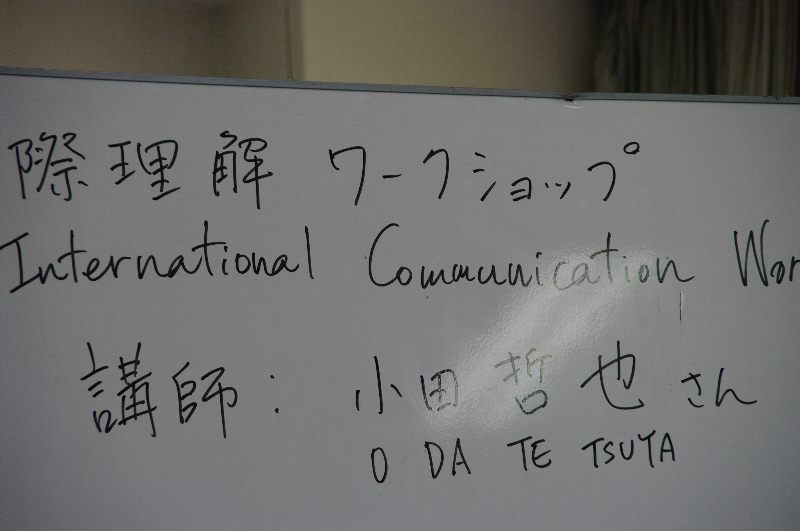 際理解 ワークショップ
International Communication Wor
講師: 小田 哲也 さん
O DA TE TSUYA